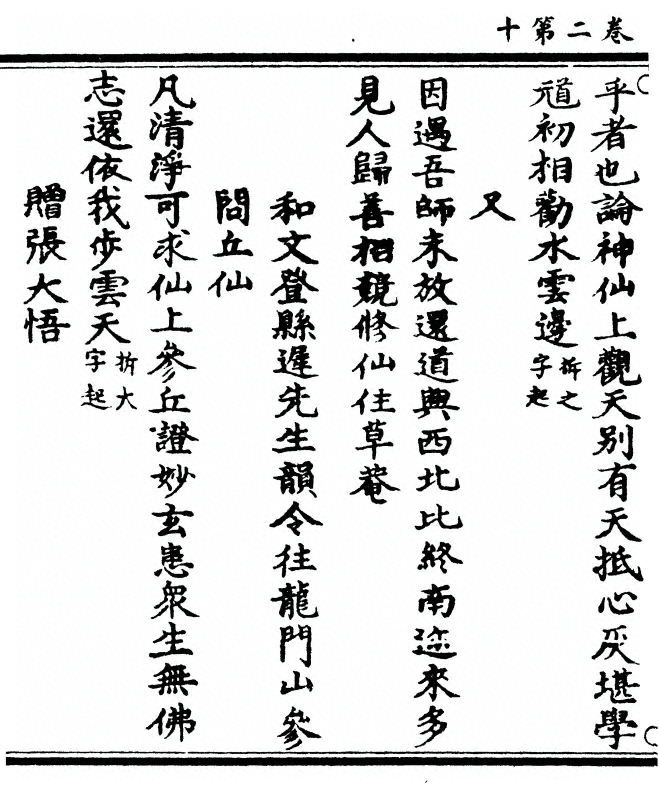 十第二卷
乎者也論神仙上觀天別有天抵心灰堪學
道初相勸水雲邊拆之字起
又
因遇吾師未放還道興西北比終南迩來多
見人歸善相競修仙住草菴
和文登縣遲先生韻令往龍門山參
問丘仙
凡清淨可求仙上參丘證妙玄患衆生無佛
志還依我步雲天拆大字起
贈張大悟